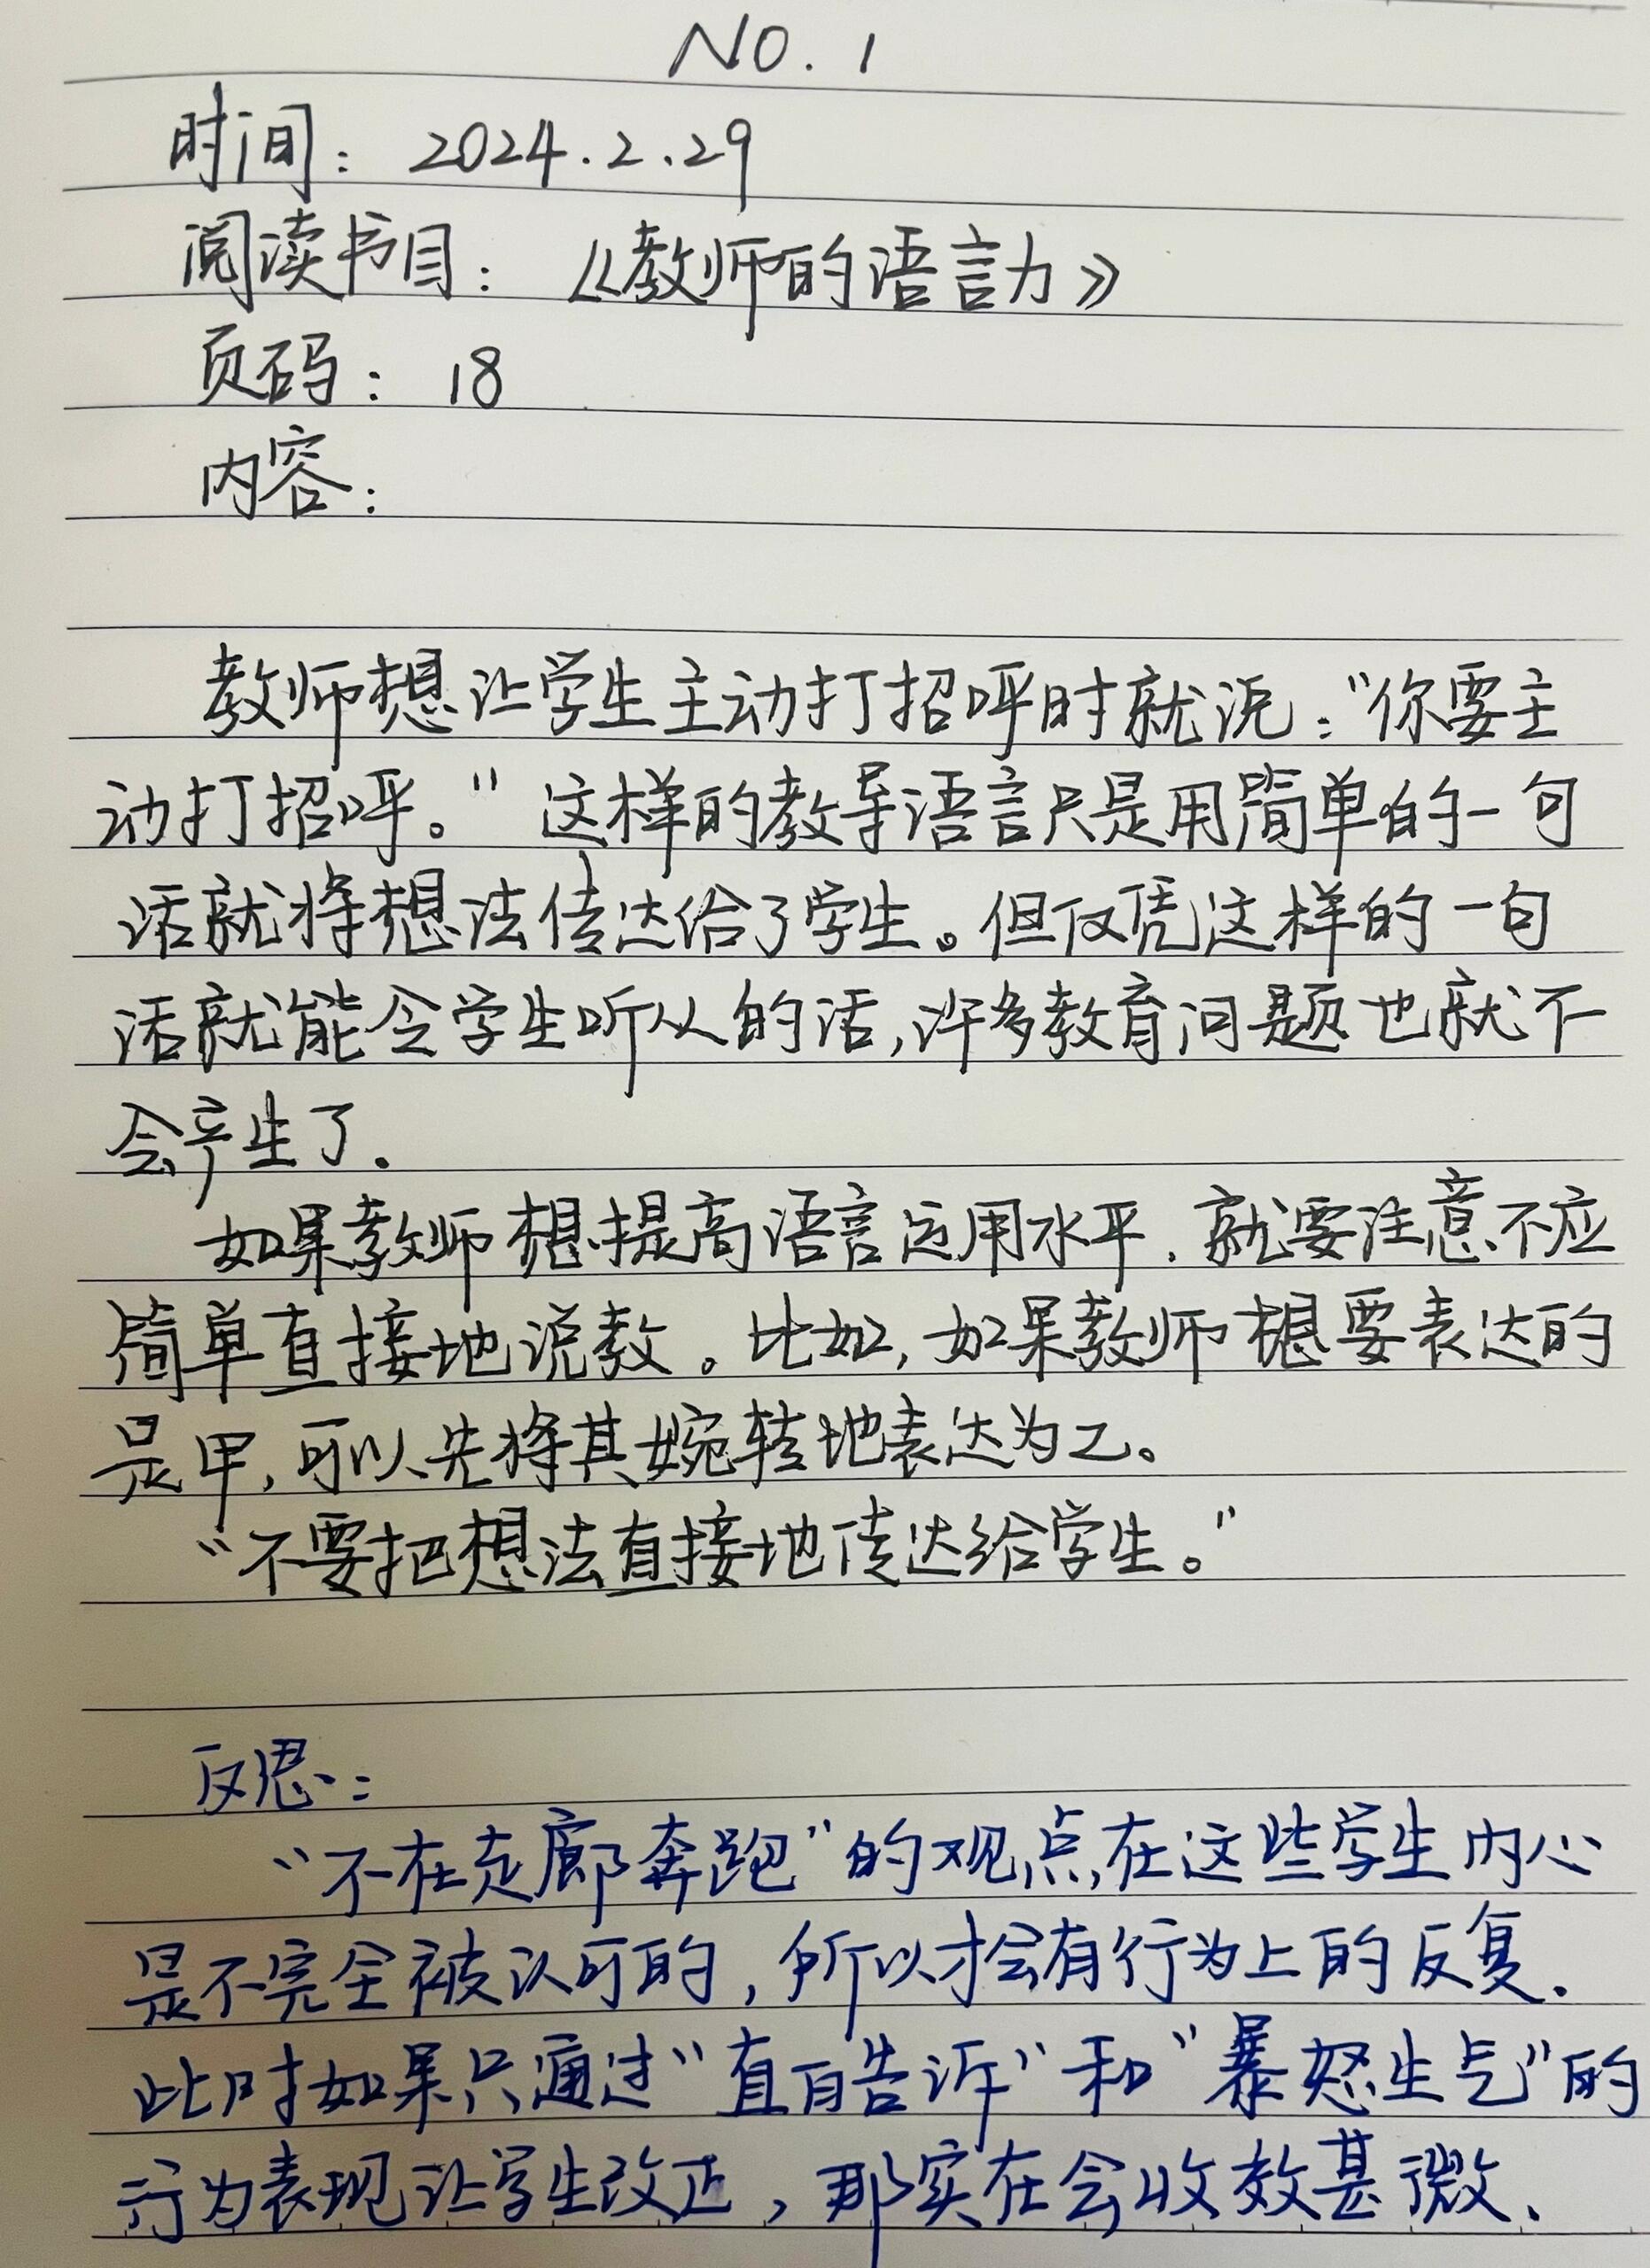 NO. 1
时间: 2024.2.29
阅读书目: 《教师的语言力》
页码: 18
内容:
教师想让学生主动打招呼时就说:“你要主
动打招呼。”这样的教导语言只是用简单的一句
话就将想法传达给了学生。但仅凭这样的一句
话就能令学生听从的话,许多教育问题也就不
会产生了.
如果教师想提高语言运用水平.就要注意不应
简单直接地说教。比如,如果教师想要表达的
是甲,可以先将其婉转地表达为乙。
“不要把想法直接地传达给学生。”
反思:
“不在走廊奔跑”的观点,在这些学生内心
是不完全被认可的,所以才会有行为上的反复.
此时如果只通过“直白告诉”和“暴怒生气”的
行为表现让学生改正,那实在会收效甚微.